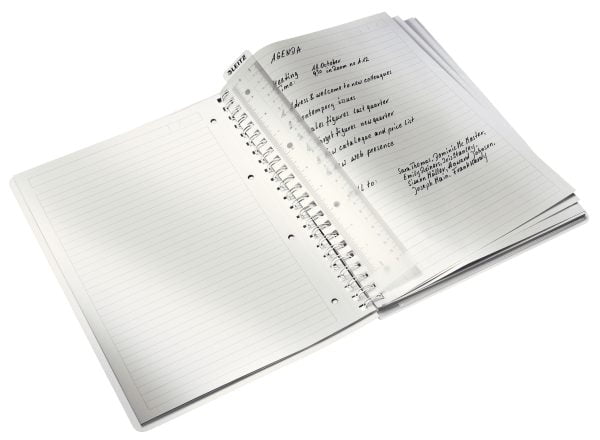 LEITZ
AGENDA
Meeting 18. October
Time: 9:30 in Room no 4.12
address & welcome to new colleagues
contemporary issues
sales figures last quarter
target figures new quarter
new catalogue and price list
new web presence
to:
Sara Thomas, Dominic Mc Master,
Emily Reiners, Iris Stanley,
Simon Miller, Howard Johnson,
Joseph Main, Frank Hardy